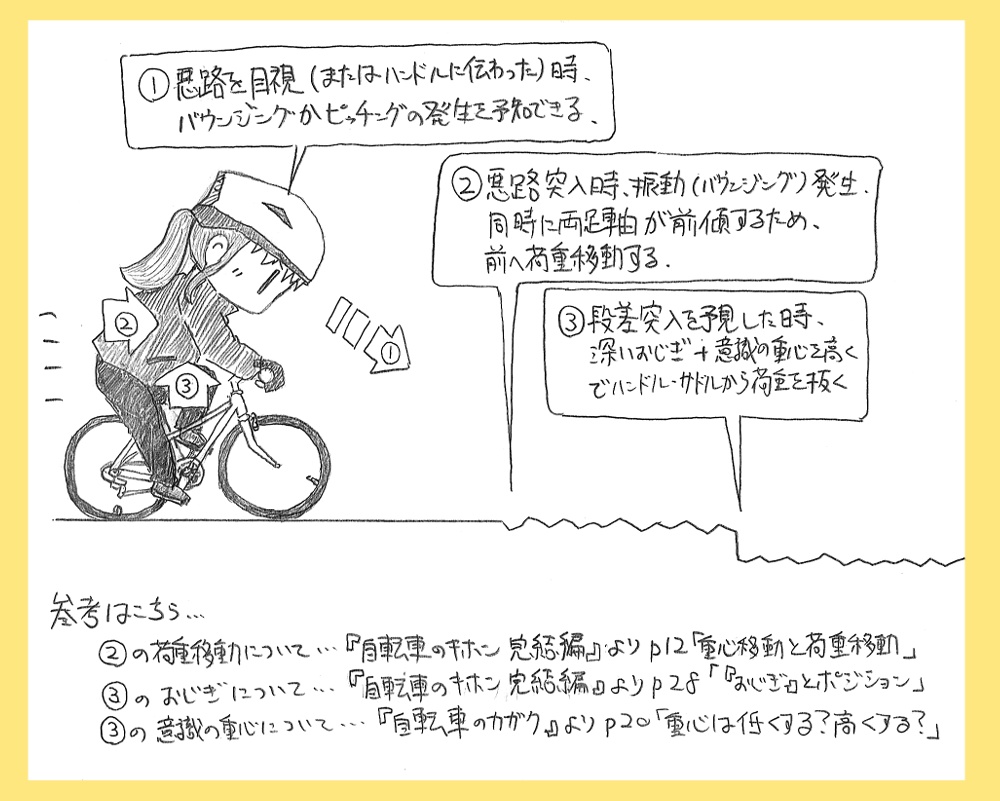 ①悪路を目視(またはハンドルに伝わった)時、
バウンジングかピッチングの発生を予知できる、
②悪路突入時、振動(バウンジング)発生.
同時に両足軸が前傾するため、
前へ荷重移動する.
③段差突入を予見した時、
深いおじぎ+意識の重心を高く
でハンドル・サドルから荷重を抜く
②
①
③
参考はこちら...
②の荷重移動について…『自転車のキホン 完結編』よりp12「重心移動と荷重移動」
③のおじぎについて…『自転車のキホン 完結編』よりp28「『おじぎ』とポジション」
③の意識の重心について…『自転車のカガク』よりp20「重心は低くする?高くする?」